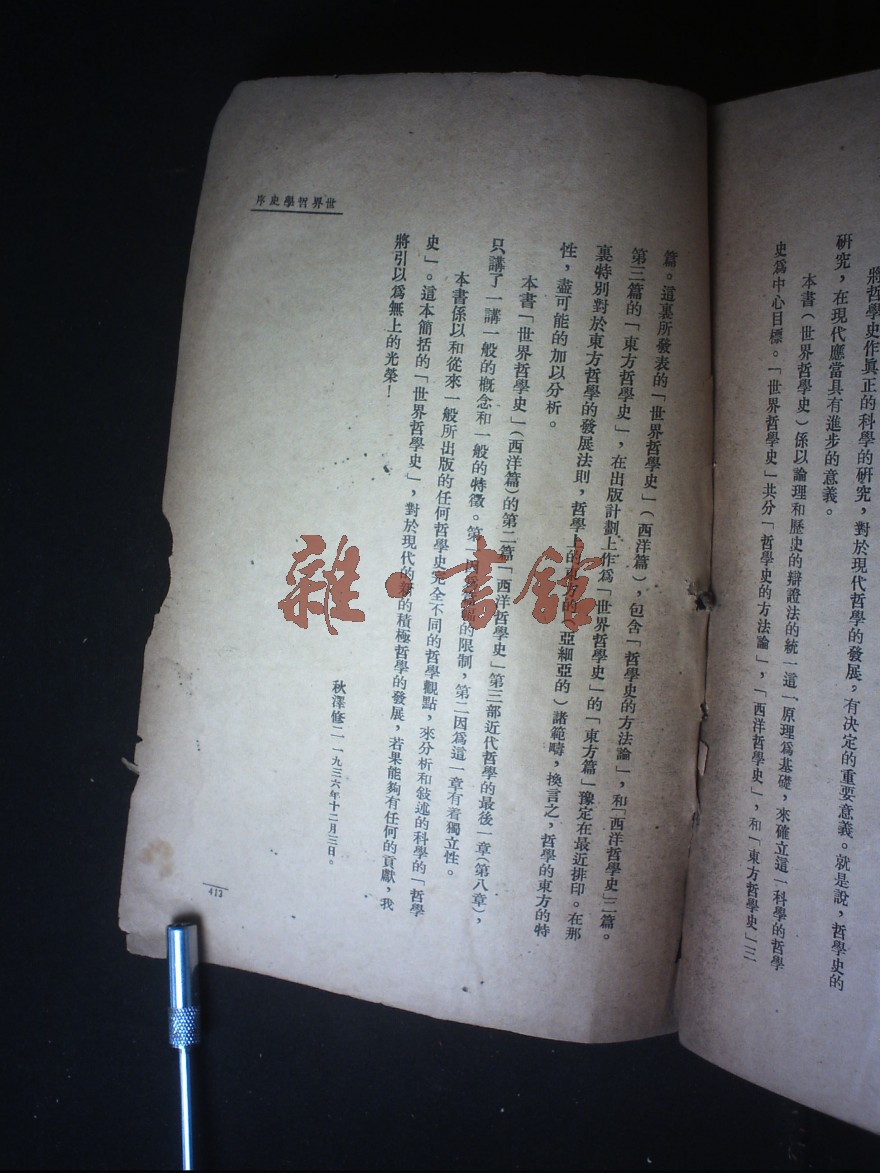 將哲學史作眞正的科學的研究,對於現代哲學的發展,有決定的重要意義。就是說,哲學史的
研究,在現代應當具有進步的意義。
本書(世界哲學史)係以論理和歷史的辯證法的統一這一原理爲基礎,來確立這一科學的哲學
史爲中心目標。「世界哲學史」共分「哲學史的方法論」,「西洋哲學史」,和「東方哲學史」三
世界哲學史序
篇。這裏所發表的「世界哲學史」(西洋篇),包含「哲學史的方法論」,和「西洋哲學史」二篇。
第三篇的「東方哲學史」,在出版計劃上作爲「世界哲學史」的「東方篇」豫定在最近排印。在那
裏特別對於東方哲學的發展法則,哲學上的東方的(亞細亞的)諸範疇,換言之,哲學的東方的特
性,盡可能的加以分析。
本書「世界哲學史」(西洋篇)的第二篇「西洋哲學史」第三部近代哲學的最後一章(第八章),
只講了一講一般的槪念和一般的特徵。第一因的限制,第二因爲這一章有着獨立性。
本書係以和從來一般所出版的任何哲學史完全不同的哲學觀點,來分析和敍述的科學的「哲學
史」。這本簡括的「世界哲學史」,對於現代的新的積極哲學的發展,若果能夠有任何的貢獻,我
將引以爲無上的光榮!
秋澤修二 一九三六年十二月三日。
413
雜·書館